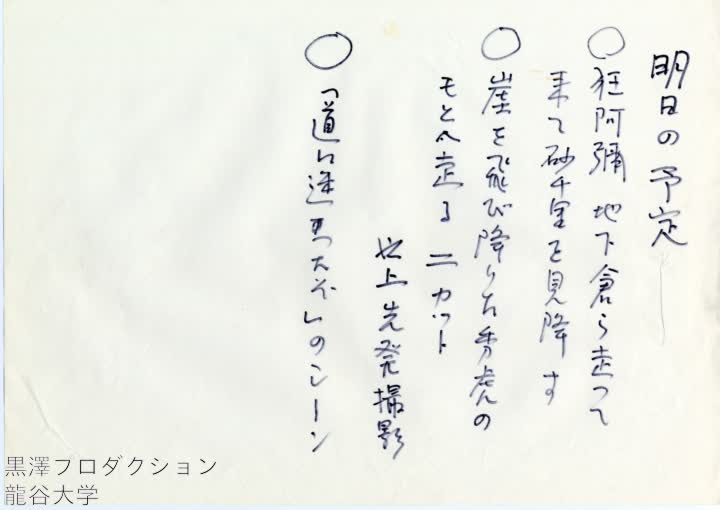 明日の予定
○ 狂阿彌 地下倉ら走って
来て砂千里を見降す
○ 崖を飛び降りた秀虎の
もとへ走る 二カット
以上先発撮影
○ 「道に迷ったぞ」のシーン
黒澤プロダクション
龍谷大学